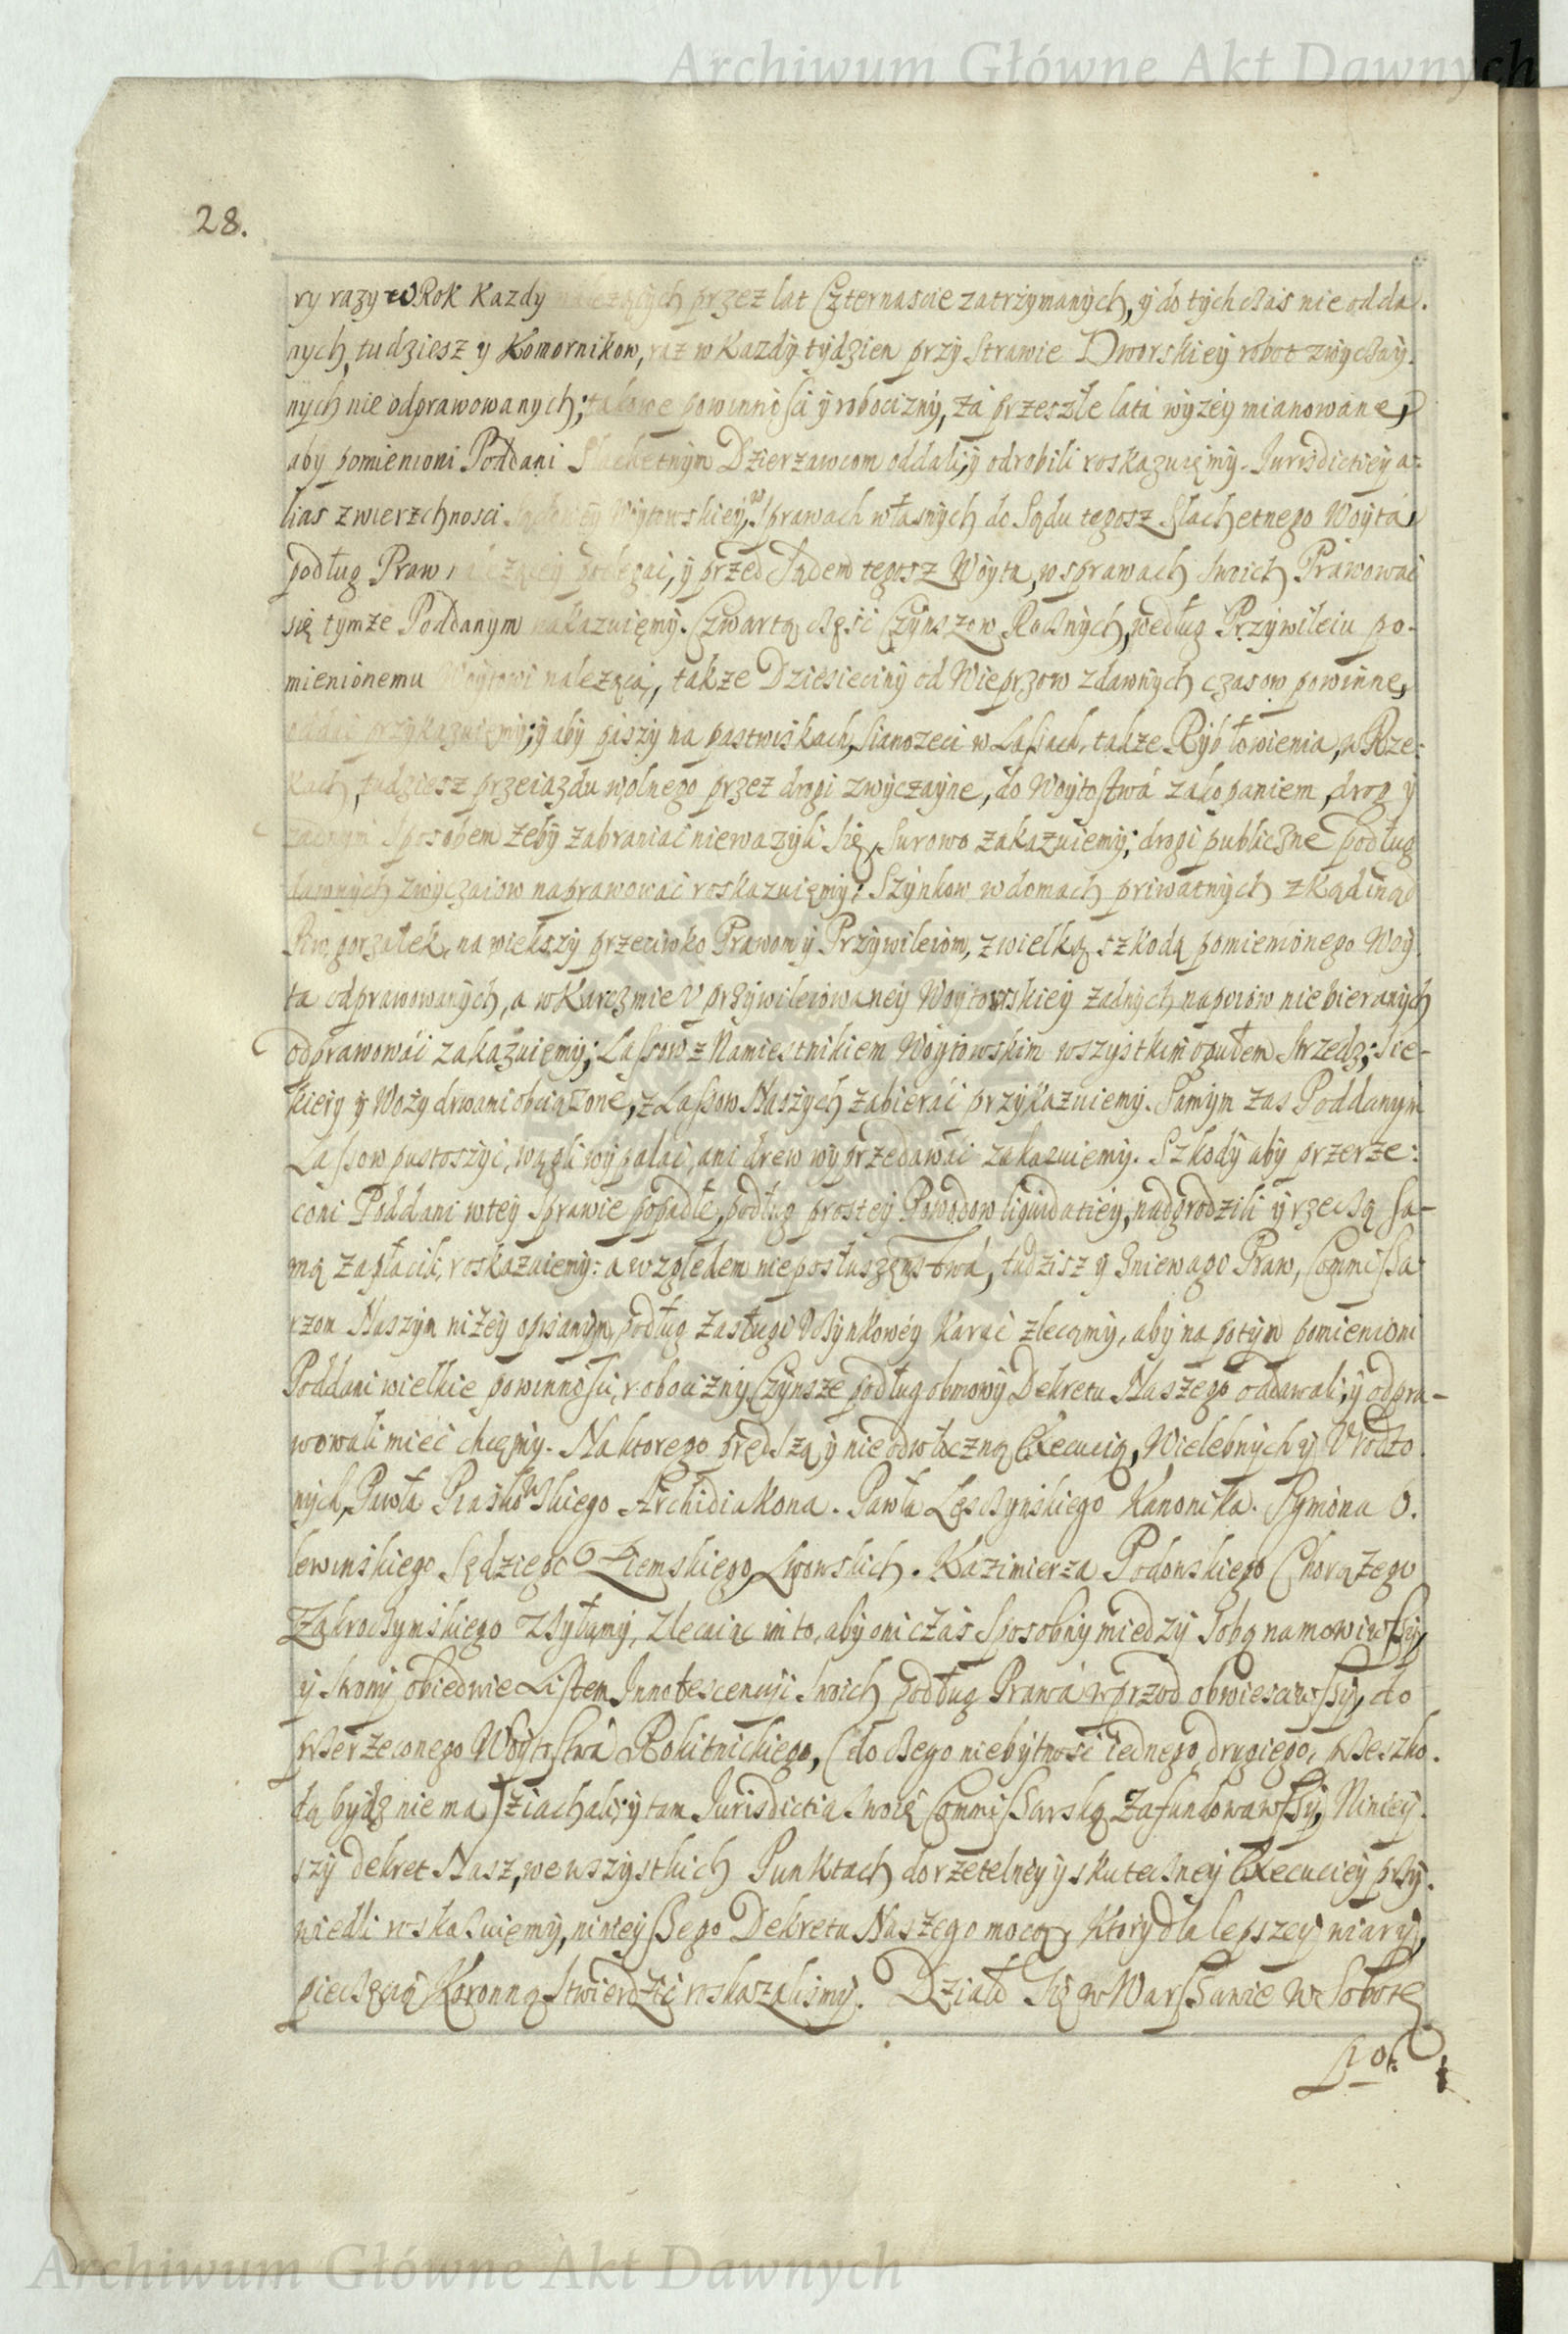 Archiwum Główne Akt Dawnych
28.
ry razy w Rok Kazdy należących przez lat Czternascie zatrzymanych, ÿ do tÿch czas nie odda.
nych, tudziesz y Komornikow, raz w Kazdÿ tÿdzien przÿ Strawie Dworskieÿ robot zwÿczaÿ.
nÿch nie odprawowanych; takowe powinnośći ÿ robociznÿ, za przeszłe lata wÿzeÿ mianowane,
aby pomienioni Poddani Slachetnÿm Dzierzawcom oddali, ÿ odrobili roskazuięmÿ. Jurisdictieÿ a:
lias zwierzchnosci Sądoweÿ Woÿtowskieÿ, w Sprawach własnÿch do Sądu tegosz Slachetnego Woÿta,
podług Praw należąceÿ podlegać, ÿ przed Sądem tegosz Woÿta, w sprawach swoich Prawować
się tymze Poddanym nakazuięmÿ. Czwartą część Czÿnszow Rocznÿch, według Przÿwileiu po-
mienionemu Woÿtowi nalezącą, takze Dziesiecinÿ od Wieprzow zdawnÿch czasow powinne,
oddać przÿkazuięmÿ; ÿ abÿ paszÿ na pastwiskach, Sianozeci w Lasach, takze Rÿb łowienia, w Rze:
kach, tudziesz przeiazdu wolnego przez drogi zwÿczaÿne, do Woÿtostwá zakopaniem drog ÿ
zadnÿm sposobem zebÿ zabraniać niewazÿli się, surowo zakazuiemÿ; drogi publiczne podług
dawnÿch zwÿczaiow naprawować roskazuięmÿ; Szÿnkow w domach priwatnÿch zkąd inąd
Piw, gorzałek, na wiekszÿ przeciwko Prawom ÿ Przÿwileiom, z wielką szkodą pomienionego Woÿ
ta odprawowanÿch, a w Karczmie Uprzÿwileiowaneÿ Woÿtowskieÿ zadnÿch napoiow niebieranÿch
odprawować zakazuięmÿ; Lassow z Namiestnikiem Woÿtowskim wszÿstkim ogułem strzedz; Sie-
kierÿ ÿ Wozÿ drwami obciązone, z Lassow Naszÿch zabierać przÿkazuiemÿ. Samÿm zas Poddanÿm
Lassow pustoszÿć, wągli wÿpalać, ani drew wÿprzedawać zakazuiemÿ. Szkodÿ abÿ przerze:
czoni Poddani w teÿ Sprawie popadłe, podług prosteÿ Powodow liquidatieÿ, nadgrodzili ÿ rzeczą sa-
mą zapłacili, roskazuiemÿ: a względem nieposłuszęnstwa, tudzisz ÿ zniewagi Praw, Commissa-
rzom Naszÿm nizeÿ opisanÿm, podług zasługi Uczÿnkoweÿ karać zlecamÿ, abÿ na potÿm pomienioni
Poddani wielkie powinnośći, robociznÿ Czÿnsze podług obmowÿ Dekretu Naszego oddawali, ÿ odpra-
wowali mieć chcęmÿ. Na ktorego prędszą ÿ nieodwłoczną Execucią, Wielebnych ÿ Urodzo.
nÿch, Pawła Piaskowskiego Archidiakona. Pawła Lesczÿńskiego Kanonika. Sÿmona O.
lewinskiego Sędziego Ziemskiego Lwowskich. Kazimierza Podowskiego Chorązego
Zakroczÿmskiego zsÿłamÿ, zlecaiąc im to, abÿ oni czas sposobnÿ miedzÿ sobą namowiwszÿ,
ÿ stronÿ obiedwie Listem Innotescenciÿ swoich podług Prawá wprzod obwiesciwszÿ, do
przerzeconego Woÿtostwá Rokitnickiego, (do czego niebÿtnosć iednego drugiego, przeszko.
dą bÿdz nie ma) ziachali, ÿ tam Jurisdictia Swoię Commissarską Zafundowawszÿ, Ninieÿ.
szÿ dekret Nasz, we wszystkich Punktach do rzetelneÿ ÿ skuteczneÿ Execucieÿ przÿ.
wiedli roskazuięmÿ, ninieÿszego Dekretu Naszego mocą, Ktorÿ dla lepszeÿ wiarÿ,
pieczęcią Koronną stwierdzić roskazalismÿ. Działo się w Warszawie w Sobotę
Archiwum Główne Akt Dawnych